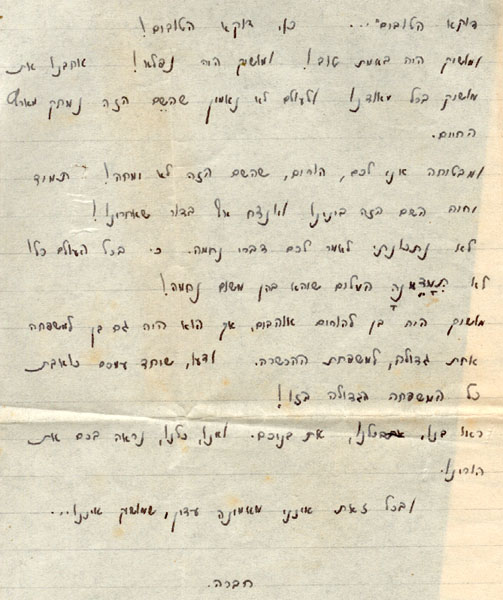 דוקא הטובים"... כן, דוקא הטובים!
ומושיק היה באמת טוב! ומושיק היה נפלא! אהבנו את
מושיק בכל מאודנו ולעולם לא נאמין שהשם הזה נמחק מארץ
החיים.
ומבטיחה אני לכם, הורים, שהשם הזה לא ימחה! תמיד
יחיה השם הזה בינינו ולנצח אף בדור שאחרינו!
לא נתכונתי לאמר לכם דברי נחמה. כי בכל העולם כלו
לא המלים שיהא בהן משום נחמה!
מושיק היה בן להורים אוהבים, אך הוא היה גם בן למשפחה
אחת גדולה, למשפחת ההכשרה. ודעו, שיחד עמכם כואבת
כל המשפחה הגדולה הזו!
ראו בנו, בכלנו, את בנוכם. ואנו, כלנו, נראה בכם את
הורינו.
ובכל זאת אינני מאמינה עדין, שמושיק איננו...
חברה.